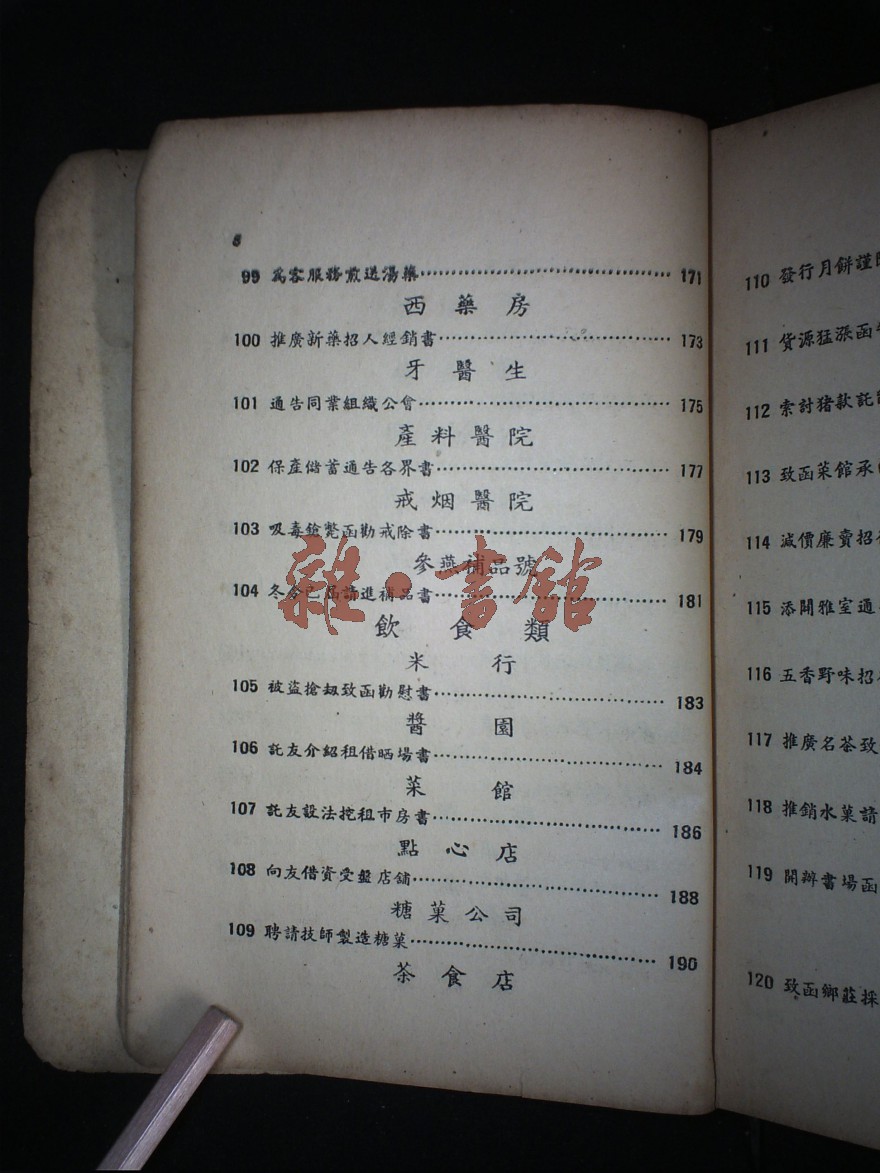 8
99 為客服務煎送湯藥 171
西藥房
100 推廣新藥招人經銷書 173
牙醫生
101 通告同業組織公會 175
產料醫院
102 保產儲蓄通告各界書 177
戒烟醫院
103 吸毒鎗斃函勸戒除書 179
參燕補品號
104 冬令已屆請進補品書 181
飲食類
米行
105 被盜搶刼致函勸慰書 183
醬園
106 託友介紹租借晒場書 184
菜館
107 託友設法挖租市房書 186
點心店
108 向友借資受盤店舖 188
糖菓公司
109 聘請技師製造糖菓 190
茶食店
雜·書館
110 發行月餅謹
111 貨源猛漲函
112 索討猪款託
113 致函菜館承
114 減價廉賣招
115 添開雅室通
116 五香野味招
117 推廣名茶致
118 推銷水菓請
119 開辦書場函
120 致函鄉莊採